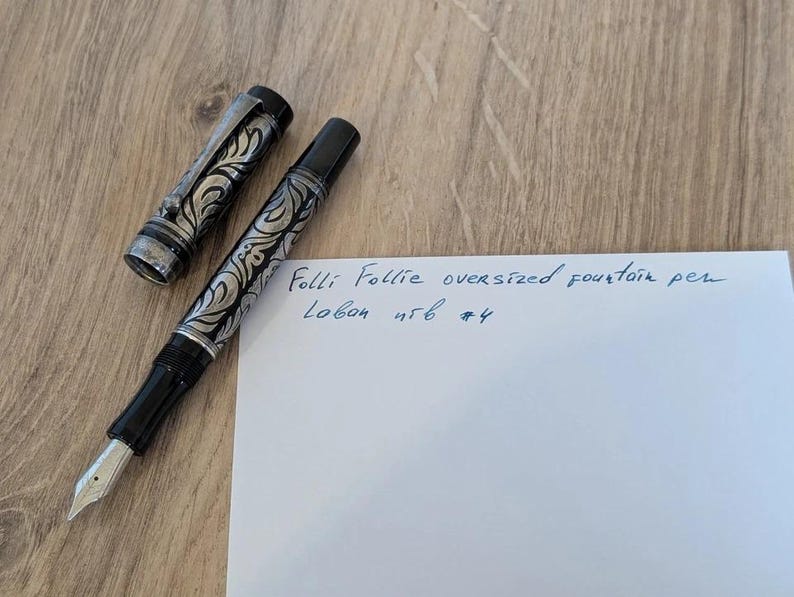 Folli Follie oversized fountain pen
Laban nib #4